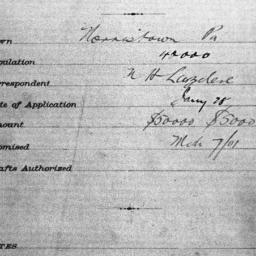 own Norristown Pa
pulation 42000
rrespondent N H
te of Application Jany
mount $50000 $5000
omised Mch 7/01
afts Authorized
TES